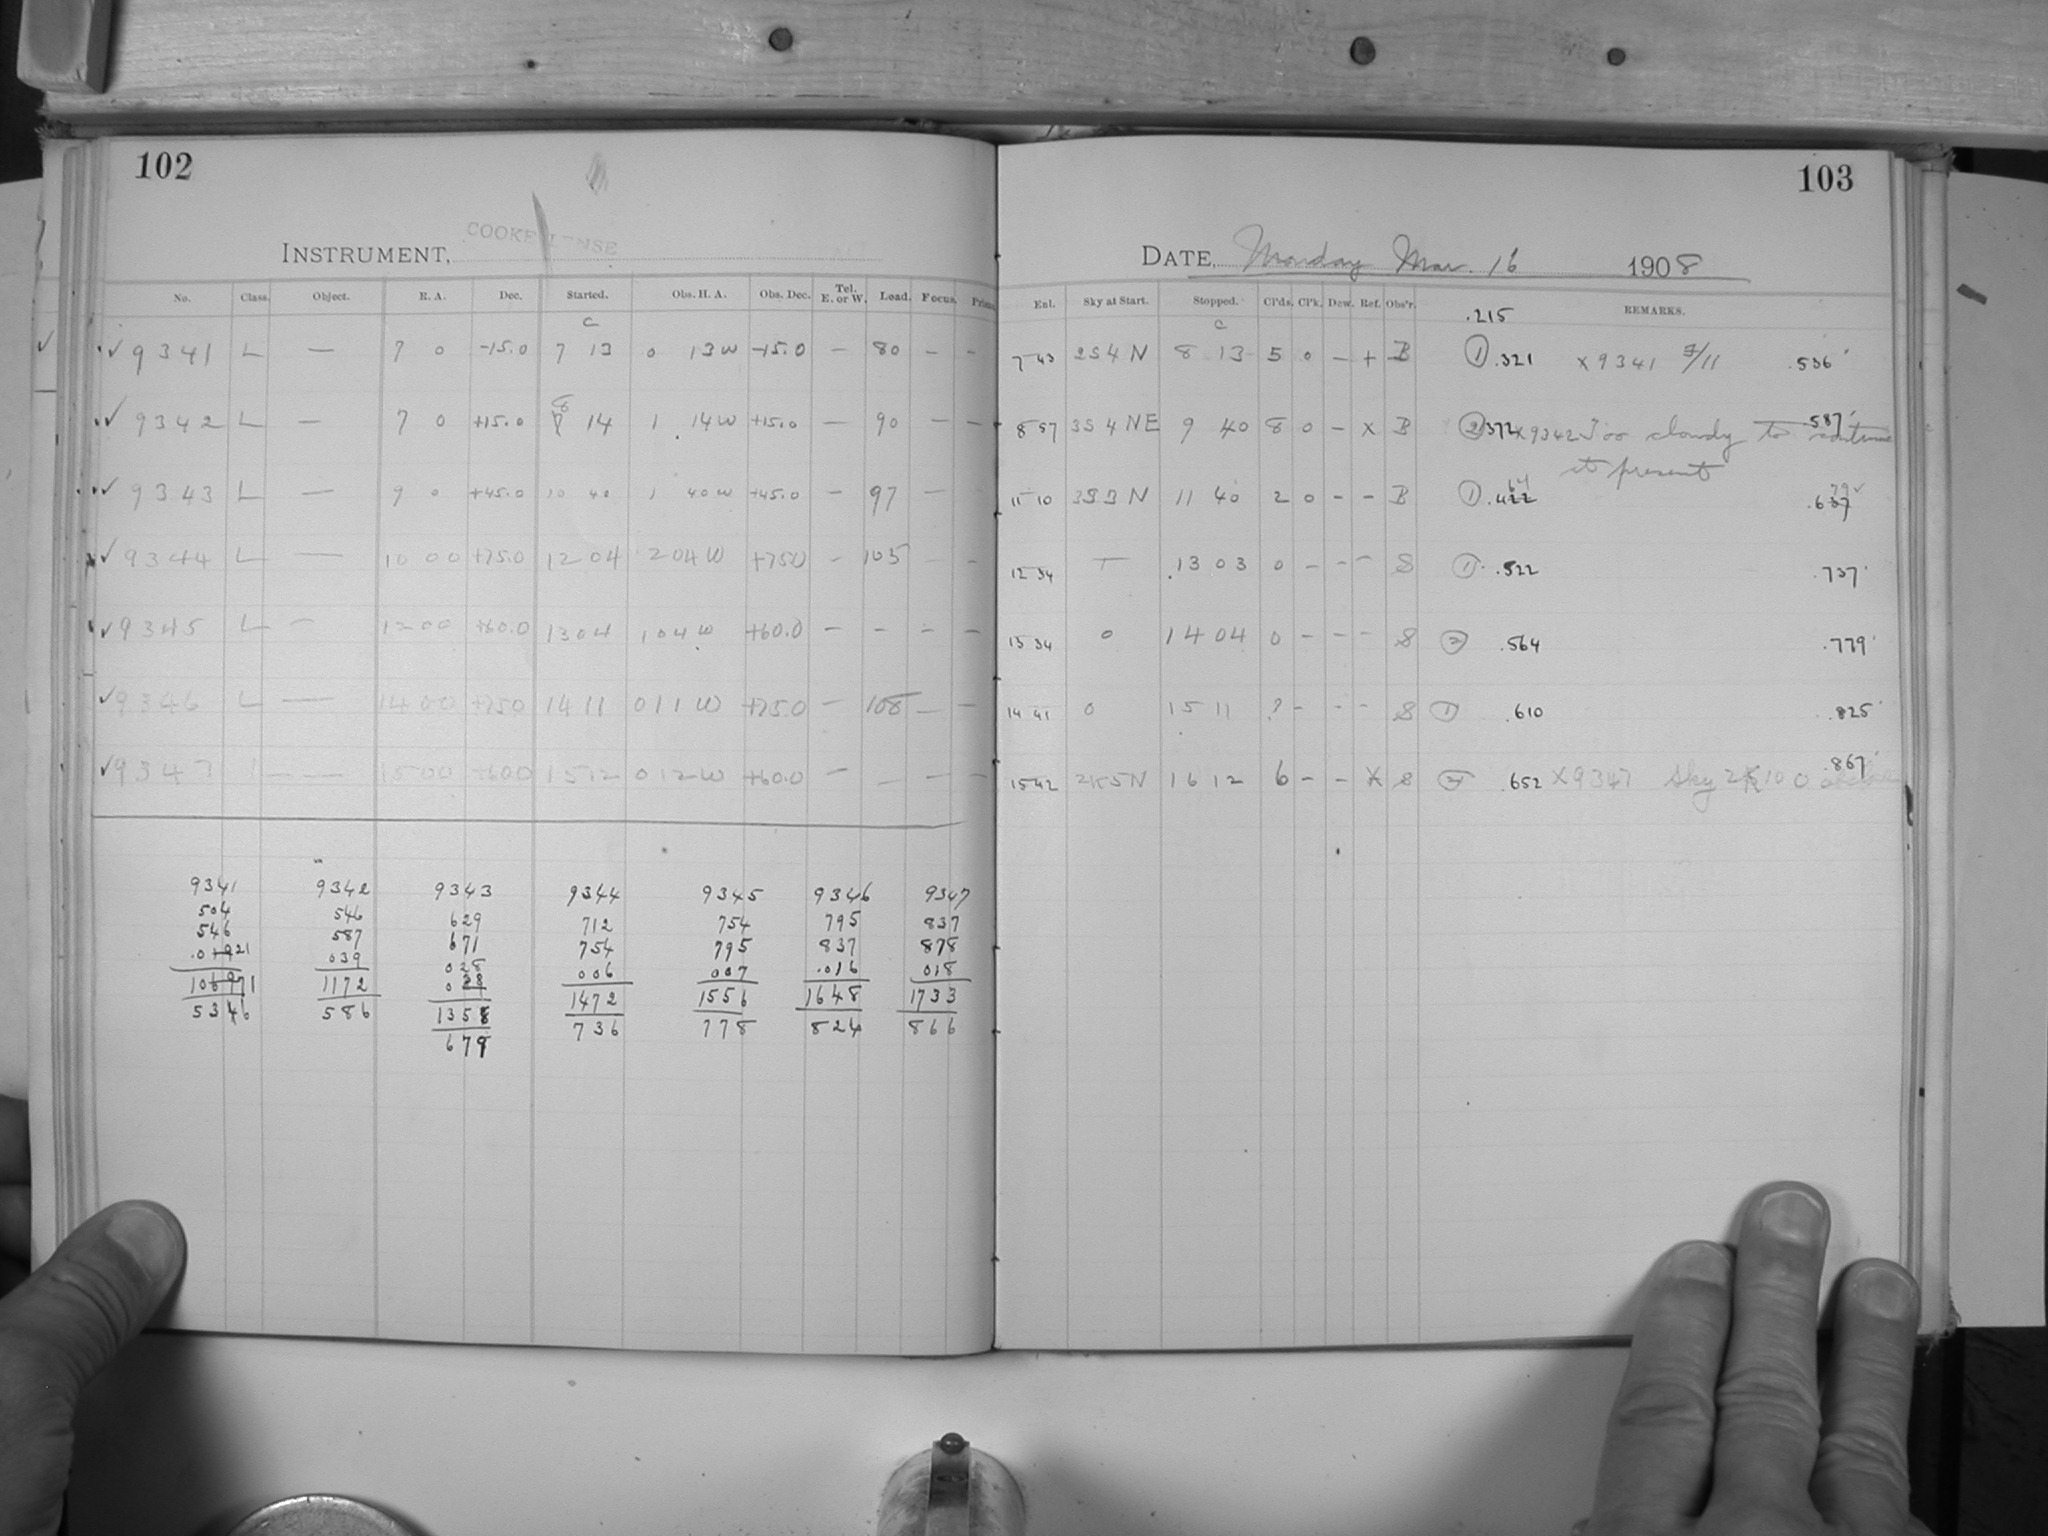 102
INSTRUMENT, COOKE LENSE
No. Class. Object. R. A. Dec. Started. Obs. H. A. Obs. Dec. Tel. E. or W. Load. Focus.
c
✓ 9341 L — 7 0 -15.0 7 13 0 13W -15.0 — 80 — -
✓ 9342 L — 7 0 +15.0 8 14 1 14W +15.0 — 90 — —
✓ 9343 L — 9 0 +45.0 10 40 1 40W +45.0 — 97 — -
✓ 9344 L — 10 00 +75.0 12 04 2 04W +75.0 — 105 — -
✓ 9345 L — 12 00 +60.0 13 04 1 04W +60.0 — - - —
✓ 9346 L — 14 00 +75.0 14 11 0 11W +75.0 — 108 — —
✓ 9347 — — 15 00 +60.0 15 12 0 12W +60.0 — — — —
9341 9342 9343 9344 9345 9346 9347
504 546 629 712 754 795 837
546 587 671 754 795 837 878
21 039 028 006 007 .016 018
1071 1172 1358 1472 1556 1648 1733
536 586 679 736 778 824 866
103
DATE, Monday Mar. 16 1908
Enl. Sky at Start. Stopped. Cl'ds. Cl'k. Dew. Ref. Obs'r. REMARKS.
c .215
7 43 2S4N 8 13 5 0 — + B ① .321 x9341 F/11 .536
8 57 3S4NE 9 40 8 0 — x B ② 372 x9342 Too cloudy to continue .587
at present
11 10 3S3N 11 40 2 0 - - B ①
12 34 — 13 03 0 - - - S ① .522 .737
13 34 0 14 04 0 - - - S ② .564 .779
14 41 0 15 11 ? - - - S ① .610 .825
15 42 2K5N 16 12 6 - - X S ② .652 x9347 Sky 2K10 0 .867